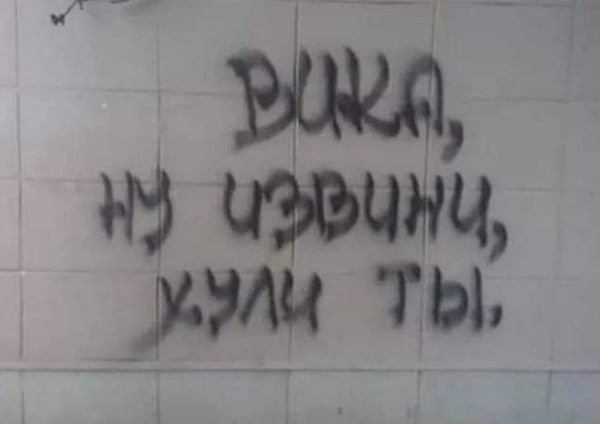 ВИКА,
НУ ИЗВИНИ,
ХУЛИ ТЫ.